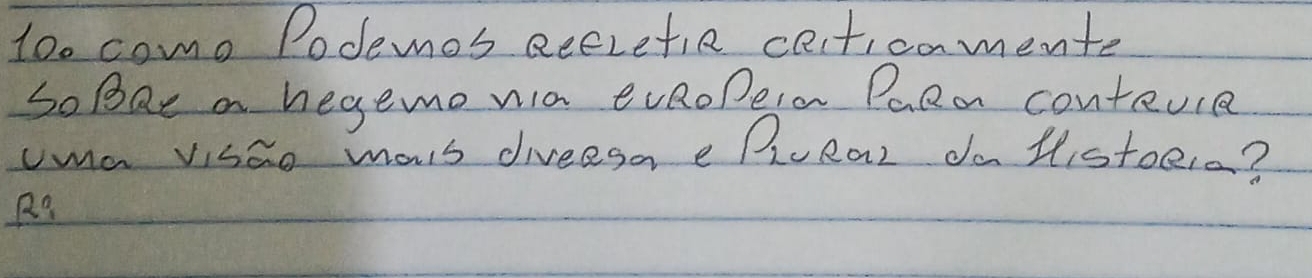 10. como Podemos Refletir criticamente
Sobre a hegemonia europeia Para contruir
uma visão mais diversa e Plural da Historia?
R: